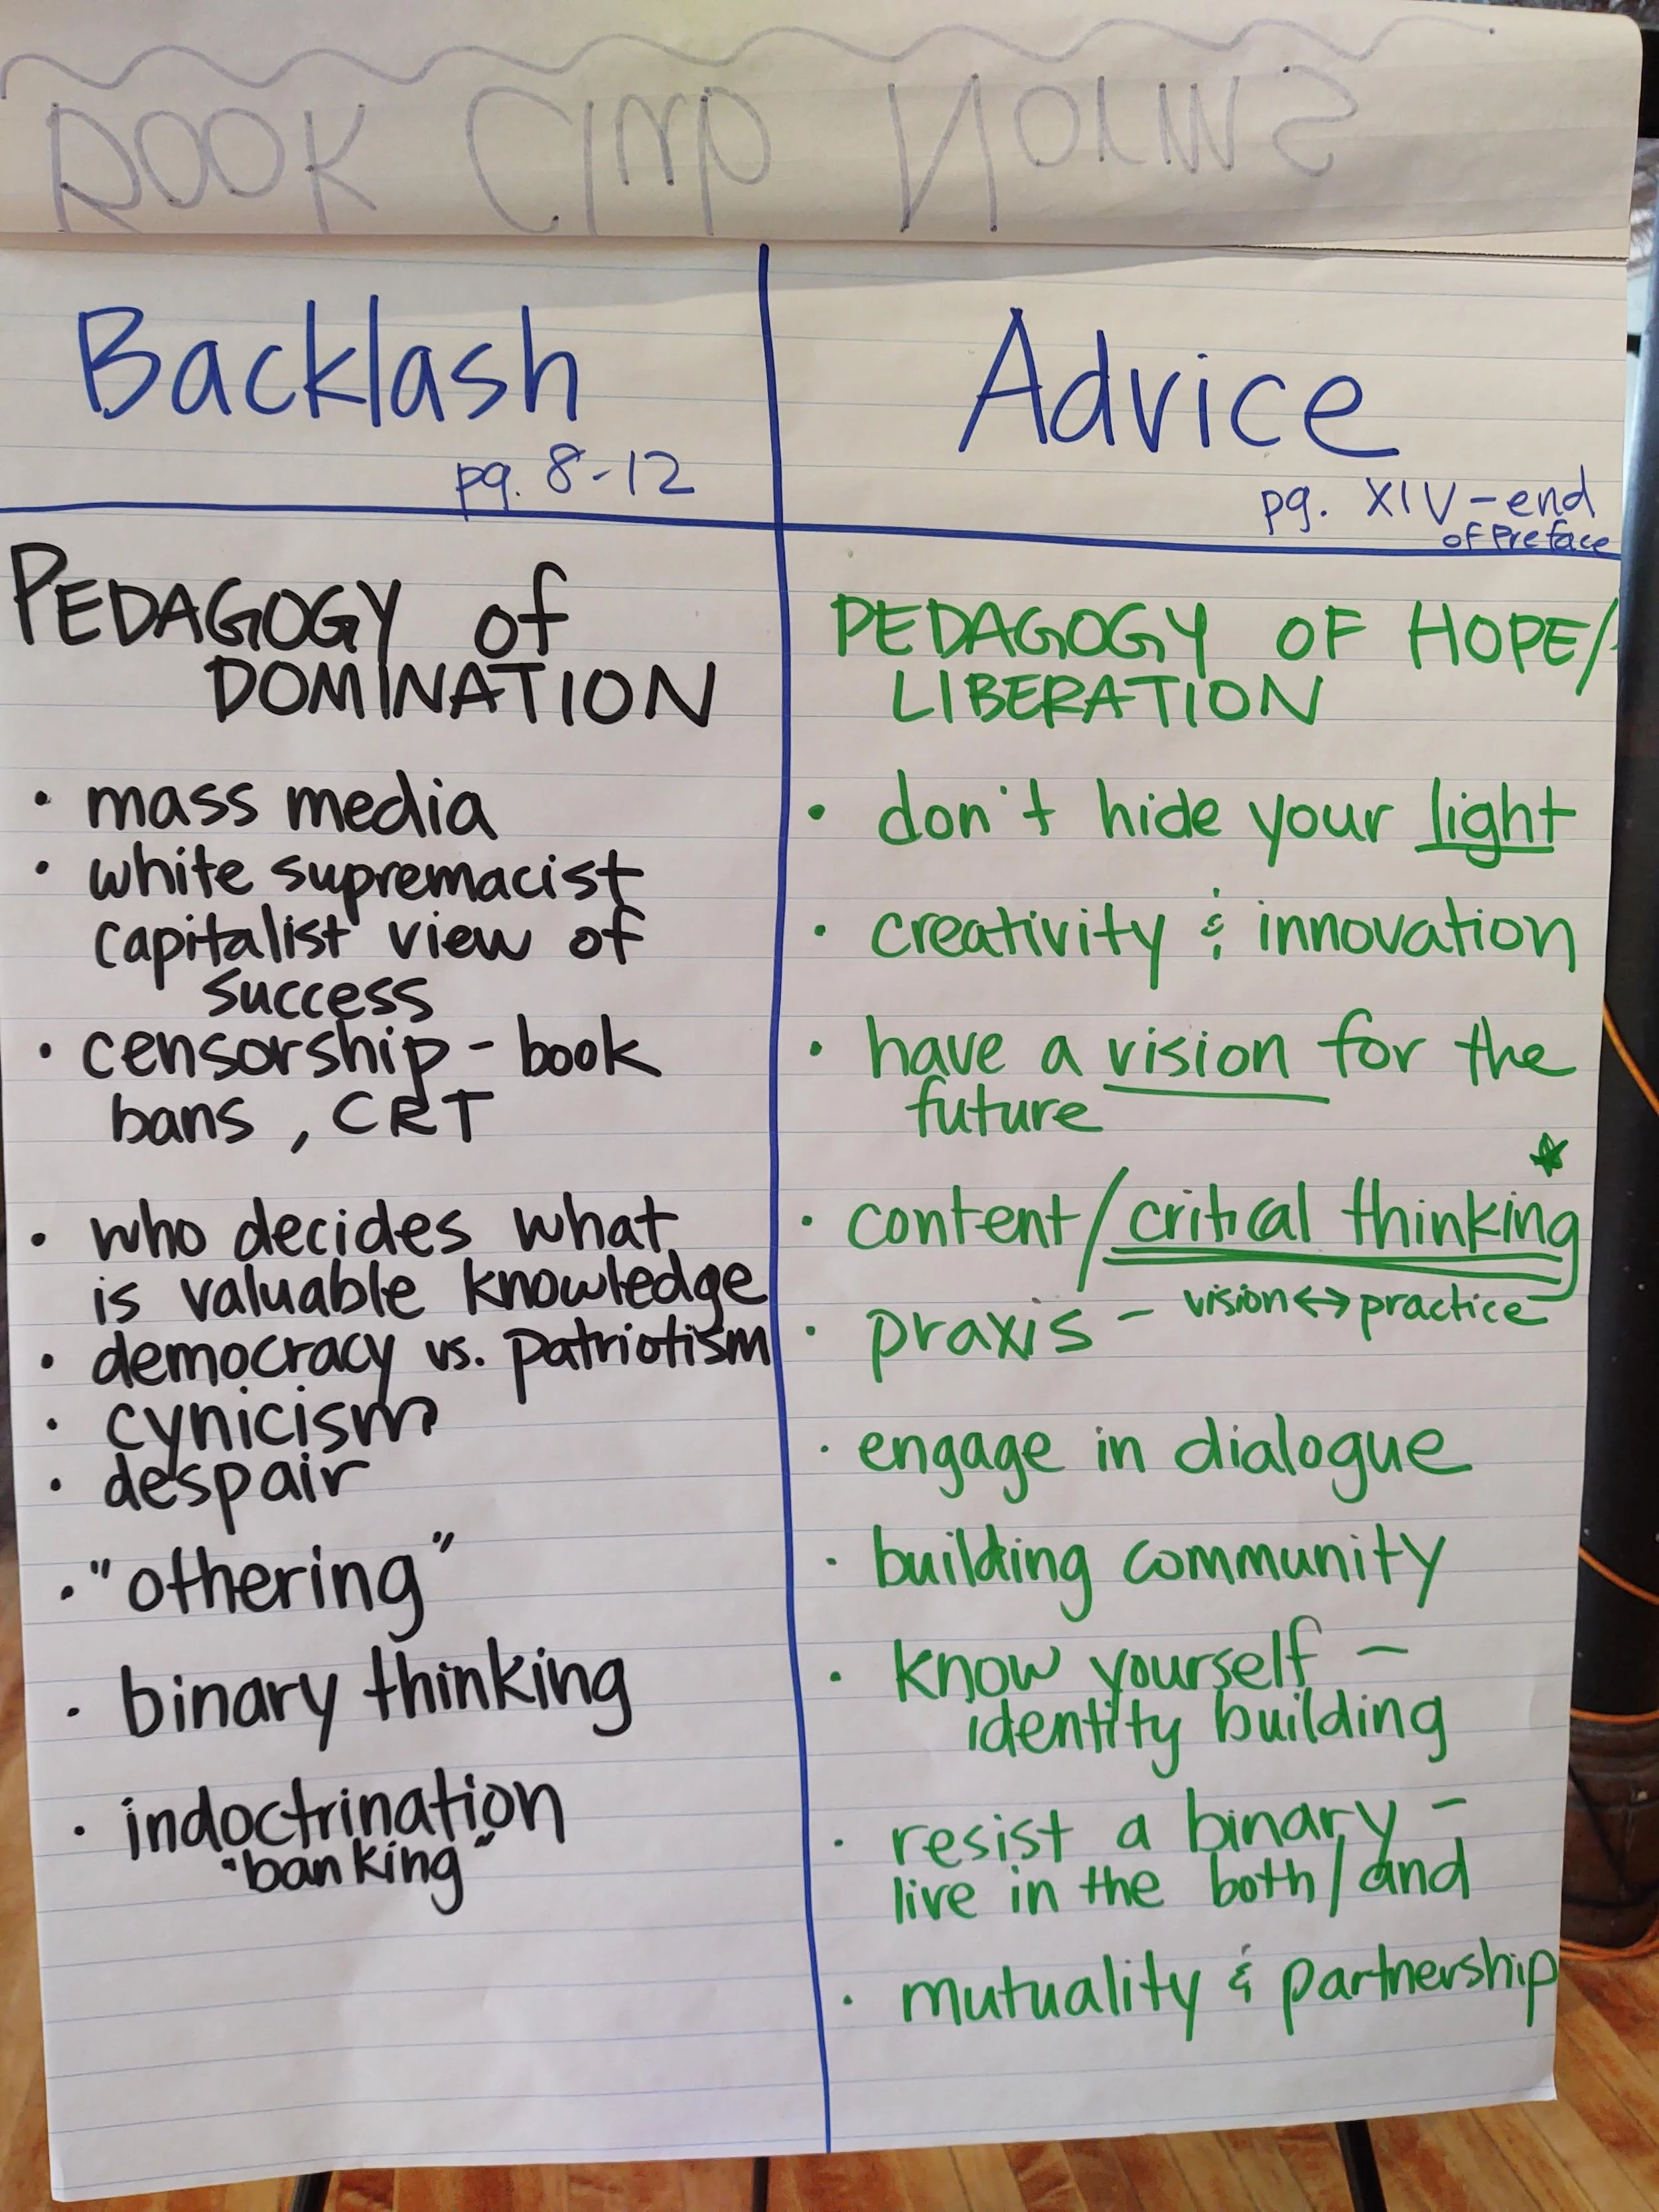 Book Club Norms
Backlash
pg. 8-12
PEDAGOGY of
DOMINATION
• mass media
• white supremacist
capitalist view of
success
• censorship - book
bans, CRT
• who decides what
is valuable knowledge
• democracy vs. patriotism
• cynicism
• despair
• "othering"
• binary thinking
• indoctrination
"banking"
Advice
pg. XIV - end
of Preface
PEDAGOGY OF HOPE/
LIBERATION
• don't hide your light
• creativity & innovation
• have a vision for the
future
• content/critical thinking
• praxis - vision ↔ practice
• engage in dialogue
• building community
• know yourself -
identity building
• resist a binary -
live in the both/and
• mutuality & partnership